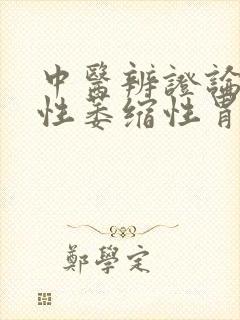 中醫辨證論
性萎缩性胃
鄭學定